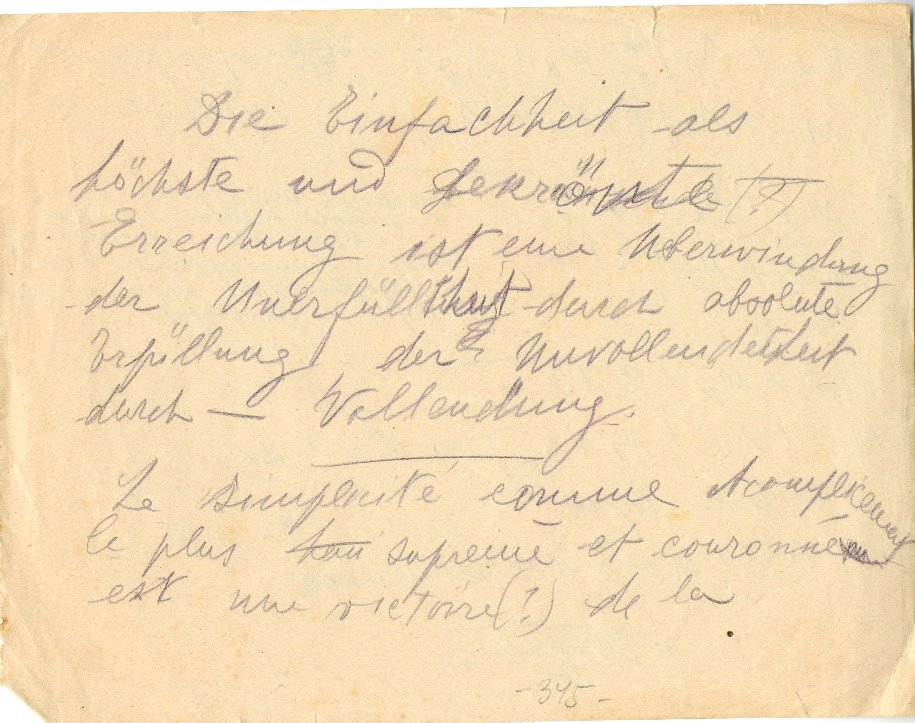 Die Einfachheit als
höchste und gekrönte (?)
Erreichung ist eine Überwindung
der Unerfülltheit durch absolute
Erfüllung, der Unvollendetheit
durch — Vollendung.
Le simplicité comme
le plus hau supreme et couronné
est une victoire (!) de la
-345-